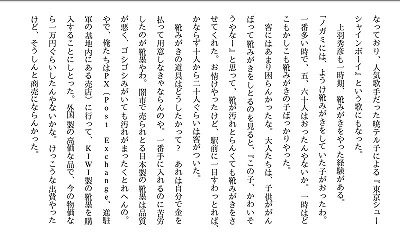 なっており、人気歌手だった暁テル子による『東京シュー
シャインボーイ』という歌にもなった。
　上羽秀彦も一時期、靴みがきをやった経験がある。
「ノガミには、ようけ靴みがきをしていた子がおったわ。
一番多い時で、五、六十人はおったんやないか。一時はど
こもかしこも靴みがきの子ばっかりやった。
　客にはあまり困らんかったな。大人たちは、子供ががん
ばって靴みがきをしとるのを見ると、『この子、かわいそ
うやなー』と思って、靴が汚れとらんくても靴みがきをさ
せてくれた。お情けやったけど、駅前に一日すわっとれば、
かならず十人から二十人ぐらいは客がついた。
　靴みがきの道具はどうしたかって？　あれは自分で金を
払って用意しなきゃならんのや。一番手に入れるのに苦労
したのが靴墨やわ。闇市で売られとる日本製の靴墨は品質
が悪く、ゴシゴシみがいても汚れがまったくとれへんの。
やで、俺たちはPX（Post Exchange、進駐
軍の基地内にある売店）に行って、KIWI製の靴墨を購
入することにしとった。外国製の高価な品で、今の物価な
ら一万円ぐらいしたんやないかな。けっこうな出費やった
けど、そうしんと商売にならんかった。